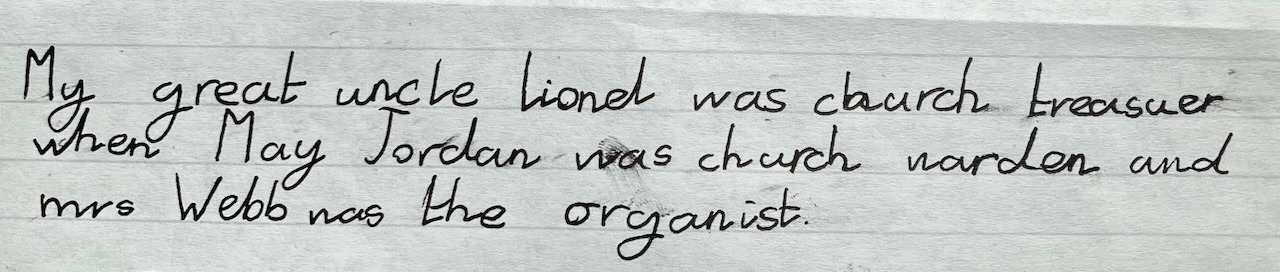 My great uncle lionel was church treasuer
when May Jordan was church narden and
mrs Webb nas the organist.